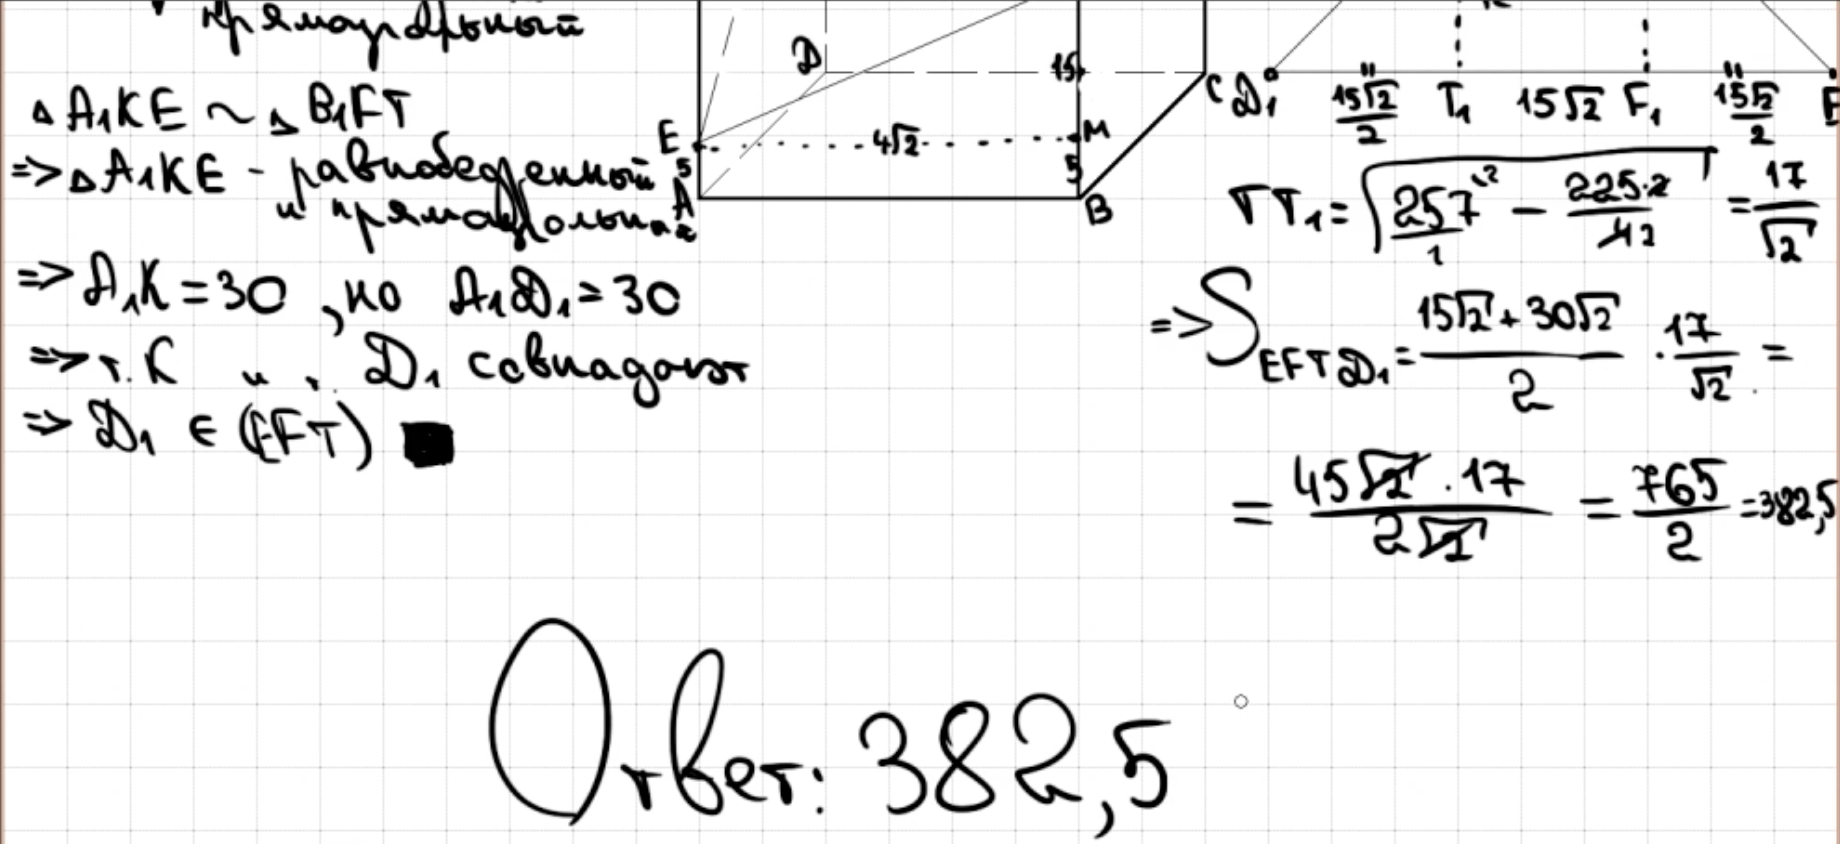 прямоугольный
△A₁KE ~ △B₁FT
=> △A₁KE - равнобедренный
и прямоугольный
=> A₁K = 30, но A₁D₁ = 30
=> т. K и т. D₁ совпадают
=> D₁ ∈ (EFT) ■
D
15
C
E
4√2
M
5
5
A
B
D₁ 15√2/2 T₁ 15√2 F₁ 15√2/2
TT₁ = √(257/1 - 225·2/42) = 17/√2
=> S EFTD₁ = (15√2 + 30√2)/2 · 17/√2 =
= 45√2 · 17/2√2 = 765/2 = 382,5
Ответ: 382,5